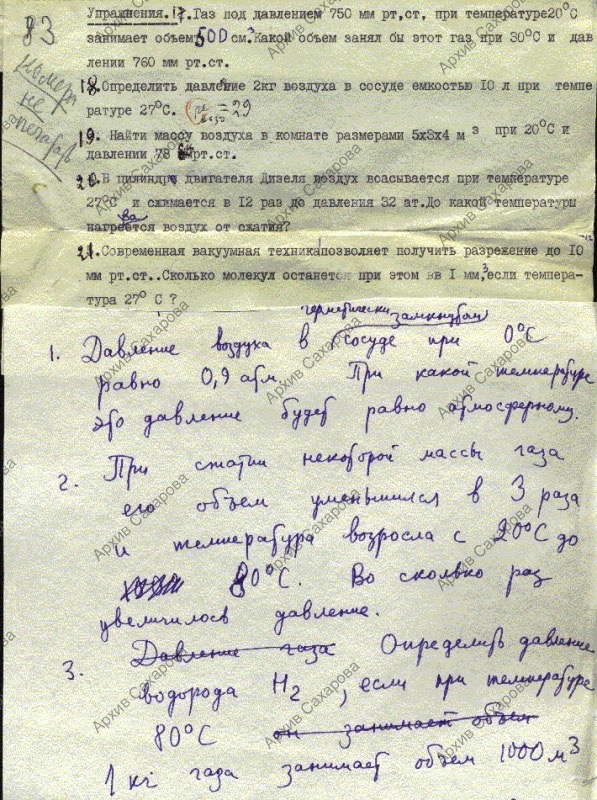 83
номера
не
печатать
Упражнения. 17. Газ под давлением 750 мм рт.ст, при температуре20°С
занимает объем 500 см.³ Какой объем занял бы этот газ при 30°С и дав
лении 760 мм рт.ст.
18. Определить давление 2кг воздуха в сосуде емкостью I0 л при темпе
ратуре 27°С. = 29
19. Найти массу воздуха в комнате размерами 5х3х4 м ³ при 20°С и
давлении 78 рт.ст.
20. В цилиндре двигателя Дизеля воздух всасывается при температуре
27°С и сжимается в I2 раз до давления 32 ат.До какой температуры
нагревается воздух от сжатия?
21. Современная вакуумная техника позволяет получить разрежение до I0⁻¹²
мм рт.ст..Сколько молекул останется при этом вв I мм,³если темпера-
тура 27° С ?
герметически замкнутом
1. Давление воздуха в сосуде при 0°С
равно 0,9 атм. При какой температуре
это давление будет равно атмосферному.
2. При сжатии некоторой массы газа
его объем уменьшился в 3 раза
и температура возросла с 20°С до
80°С. Во сколько раз
увеличилось давление.
3. Давление газа Определить давление
водорода H₂, если при температуре
80°С он занимает объем
1 кг газа занимает объем 1000 м³
Архив Сахарова